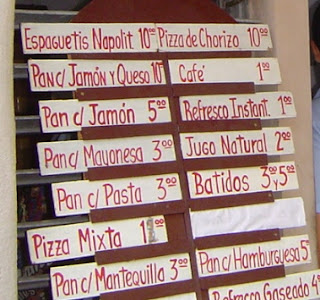 Espaguetis Napolit 10⁰⁰ Pizza de Chorizo 10⁰⁰
Pan c/ Jamón y Queso 10⁰⁰ Café 1⁰⁰
Pan c/ Jamón 5⁰⁰ Refresco Instant. 1⁰⁰
Pan c/ Mayonesa 3⁰⁰ Jugo Natural 2⁰⁰
Pan c/ Pasta 3⁰⁰ Batidos 3⁰⁰ y 5⁰⁰
Pizza Mixta
Pan c/ Mantequilla 3⁰⁰ Pan c/ Hamburguesa 5⁰⁰
Refresco Gaseado 4⁰⁰